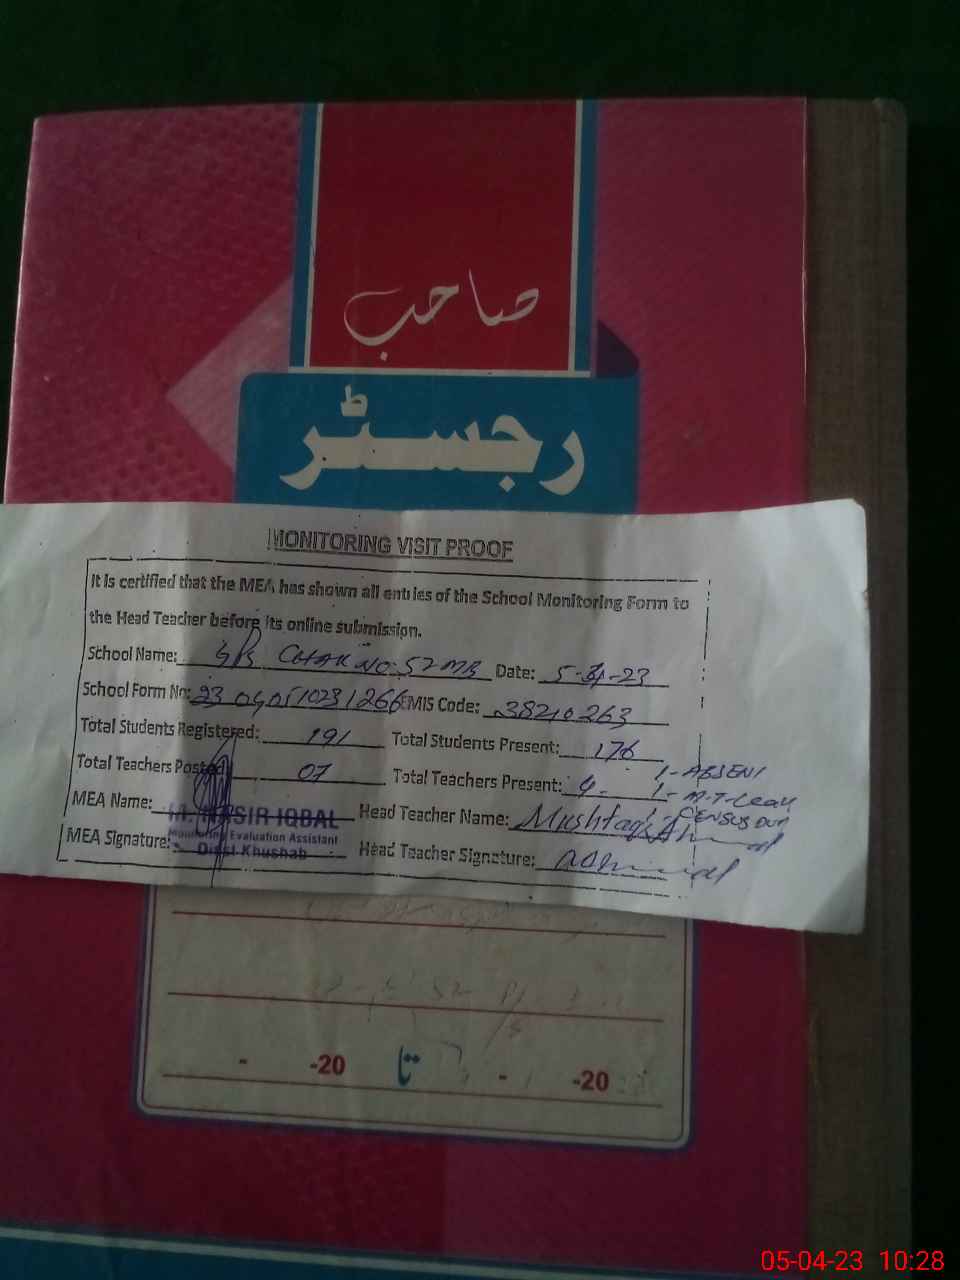 صاحب
رجسٹر
MONITORING VISIT PROOF
It is certified that the MEA has shown all entries of the School Monitoring Form to
the Head Teacher before its online submission.
School Name: CHAK NO. 52 MB Date: 5-4-23
School Form No: EMIS Code: 38210263
Total Students Registered: 191 Total Students Present: 176
Total Teachers Posted: 07 Total Teachers Present: 4
1- ABSENT
1- M.T-Leav
CENSUS DUTY
MEA Name: M. NASIR IQBAL Head Teacher Name: Mushtaq Ahmad
Monitoring Evaluation Assistant
Distt Khushab
MEA Signature: Head Teacher Signature:
- -20 تا - -20
05-04-23 10:28